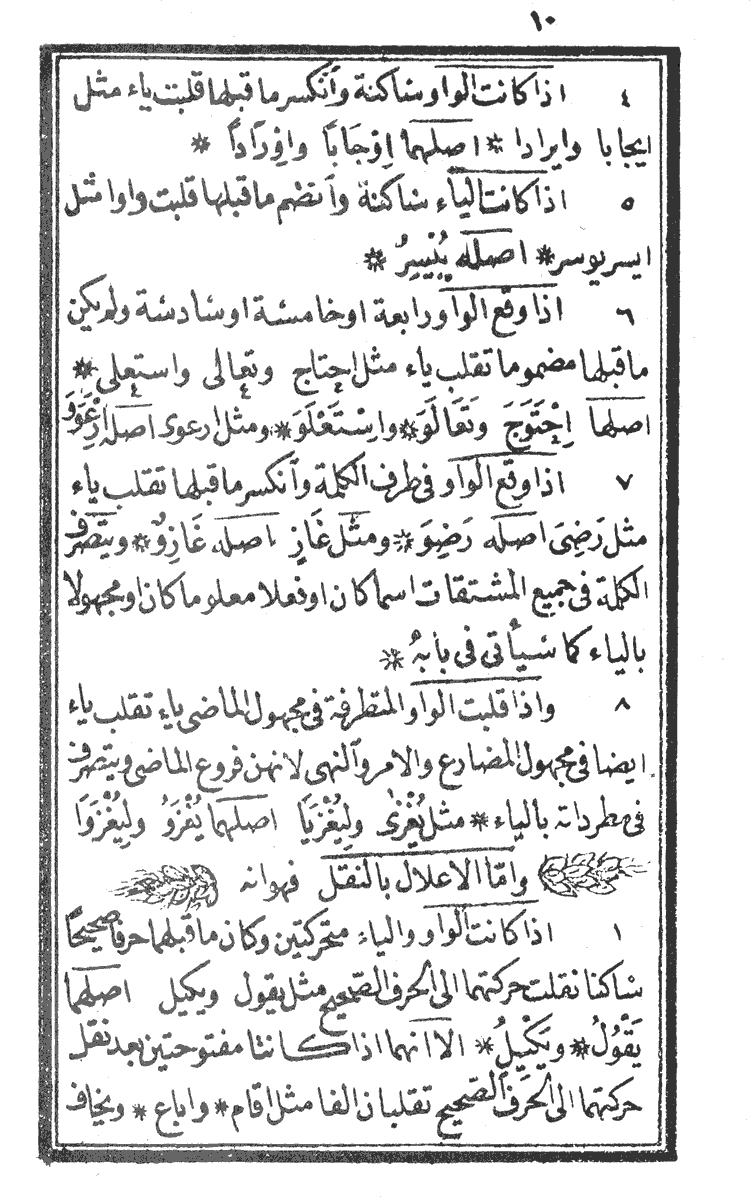 ١٠
٤ اذا كانت الواو ساكنة وانكسر ما قبلها قلبت ياء مثل
ايجابا وايرادا * اصلهما اِوْجَاباً واِوْرَاداً *
٥ اذا كانت الياء ساكنة وانضم ما قبلها قلبت واوا مثل
ايسر يوسر * اصله يُيْسِرُ *
٦ اذا وقع الواو رابعة او خامسة او سادسة ولم يكن
ما قبلها مضموما تقلب ياء مثل احتاج وتعالى واستعلى *
اصلها اِحْتَوَجَ وَتَعَالَوَ * واِسْتَعْلَوَ * ومثل ارعوى اصله اِرْعَوَوَ
٧ اذا وقع الواو فى طرف الكلمة وانكسر ما قبلها تقلب ياء
مثل رَضِىَ اصله رَضِوَ * ومثل غَازٍ اصله غَازِوٌ * ويتصرف
الكلمة فى جميع المشتقات اسما كان او فعلا معلوما كان او مجهولا
بالياء كما سيأتى فى بابهُ *
٨ واذا قلبت الواو المتطرفة فى مجهول الماضى ياء تقلب ياء
ايضا فى مجهول المضارع والامر والنهى لانهن فروع الماضى ويتصرف
فى مطرداته بالياء * مثل يُغْزٰى ولِيُغْزَيَا اصلهما يُغْزَوُ ولِيُغْزَوَا
وامّا الاعلال بالنقل فهو انه
١ اذا كانت الواو والياء متحركتين وكان ما قبلهما حرفا صحيحاً
ساكنا نقلت حركتهما الى الحرف الصحيح مثل يقول ويكيل اصلهما
يَقْوُلُ * ويَكْيِلُ * الا انهما اذا كانتا مفتوحتين بعد نقل
حركتهما الى الحرف الصحيح تقلبان الفا مثل اقام * واباع * ويخاف